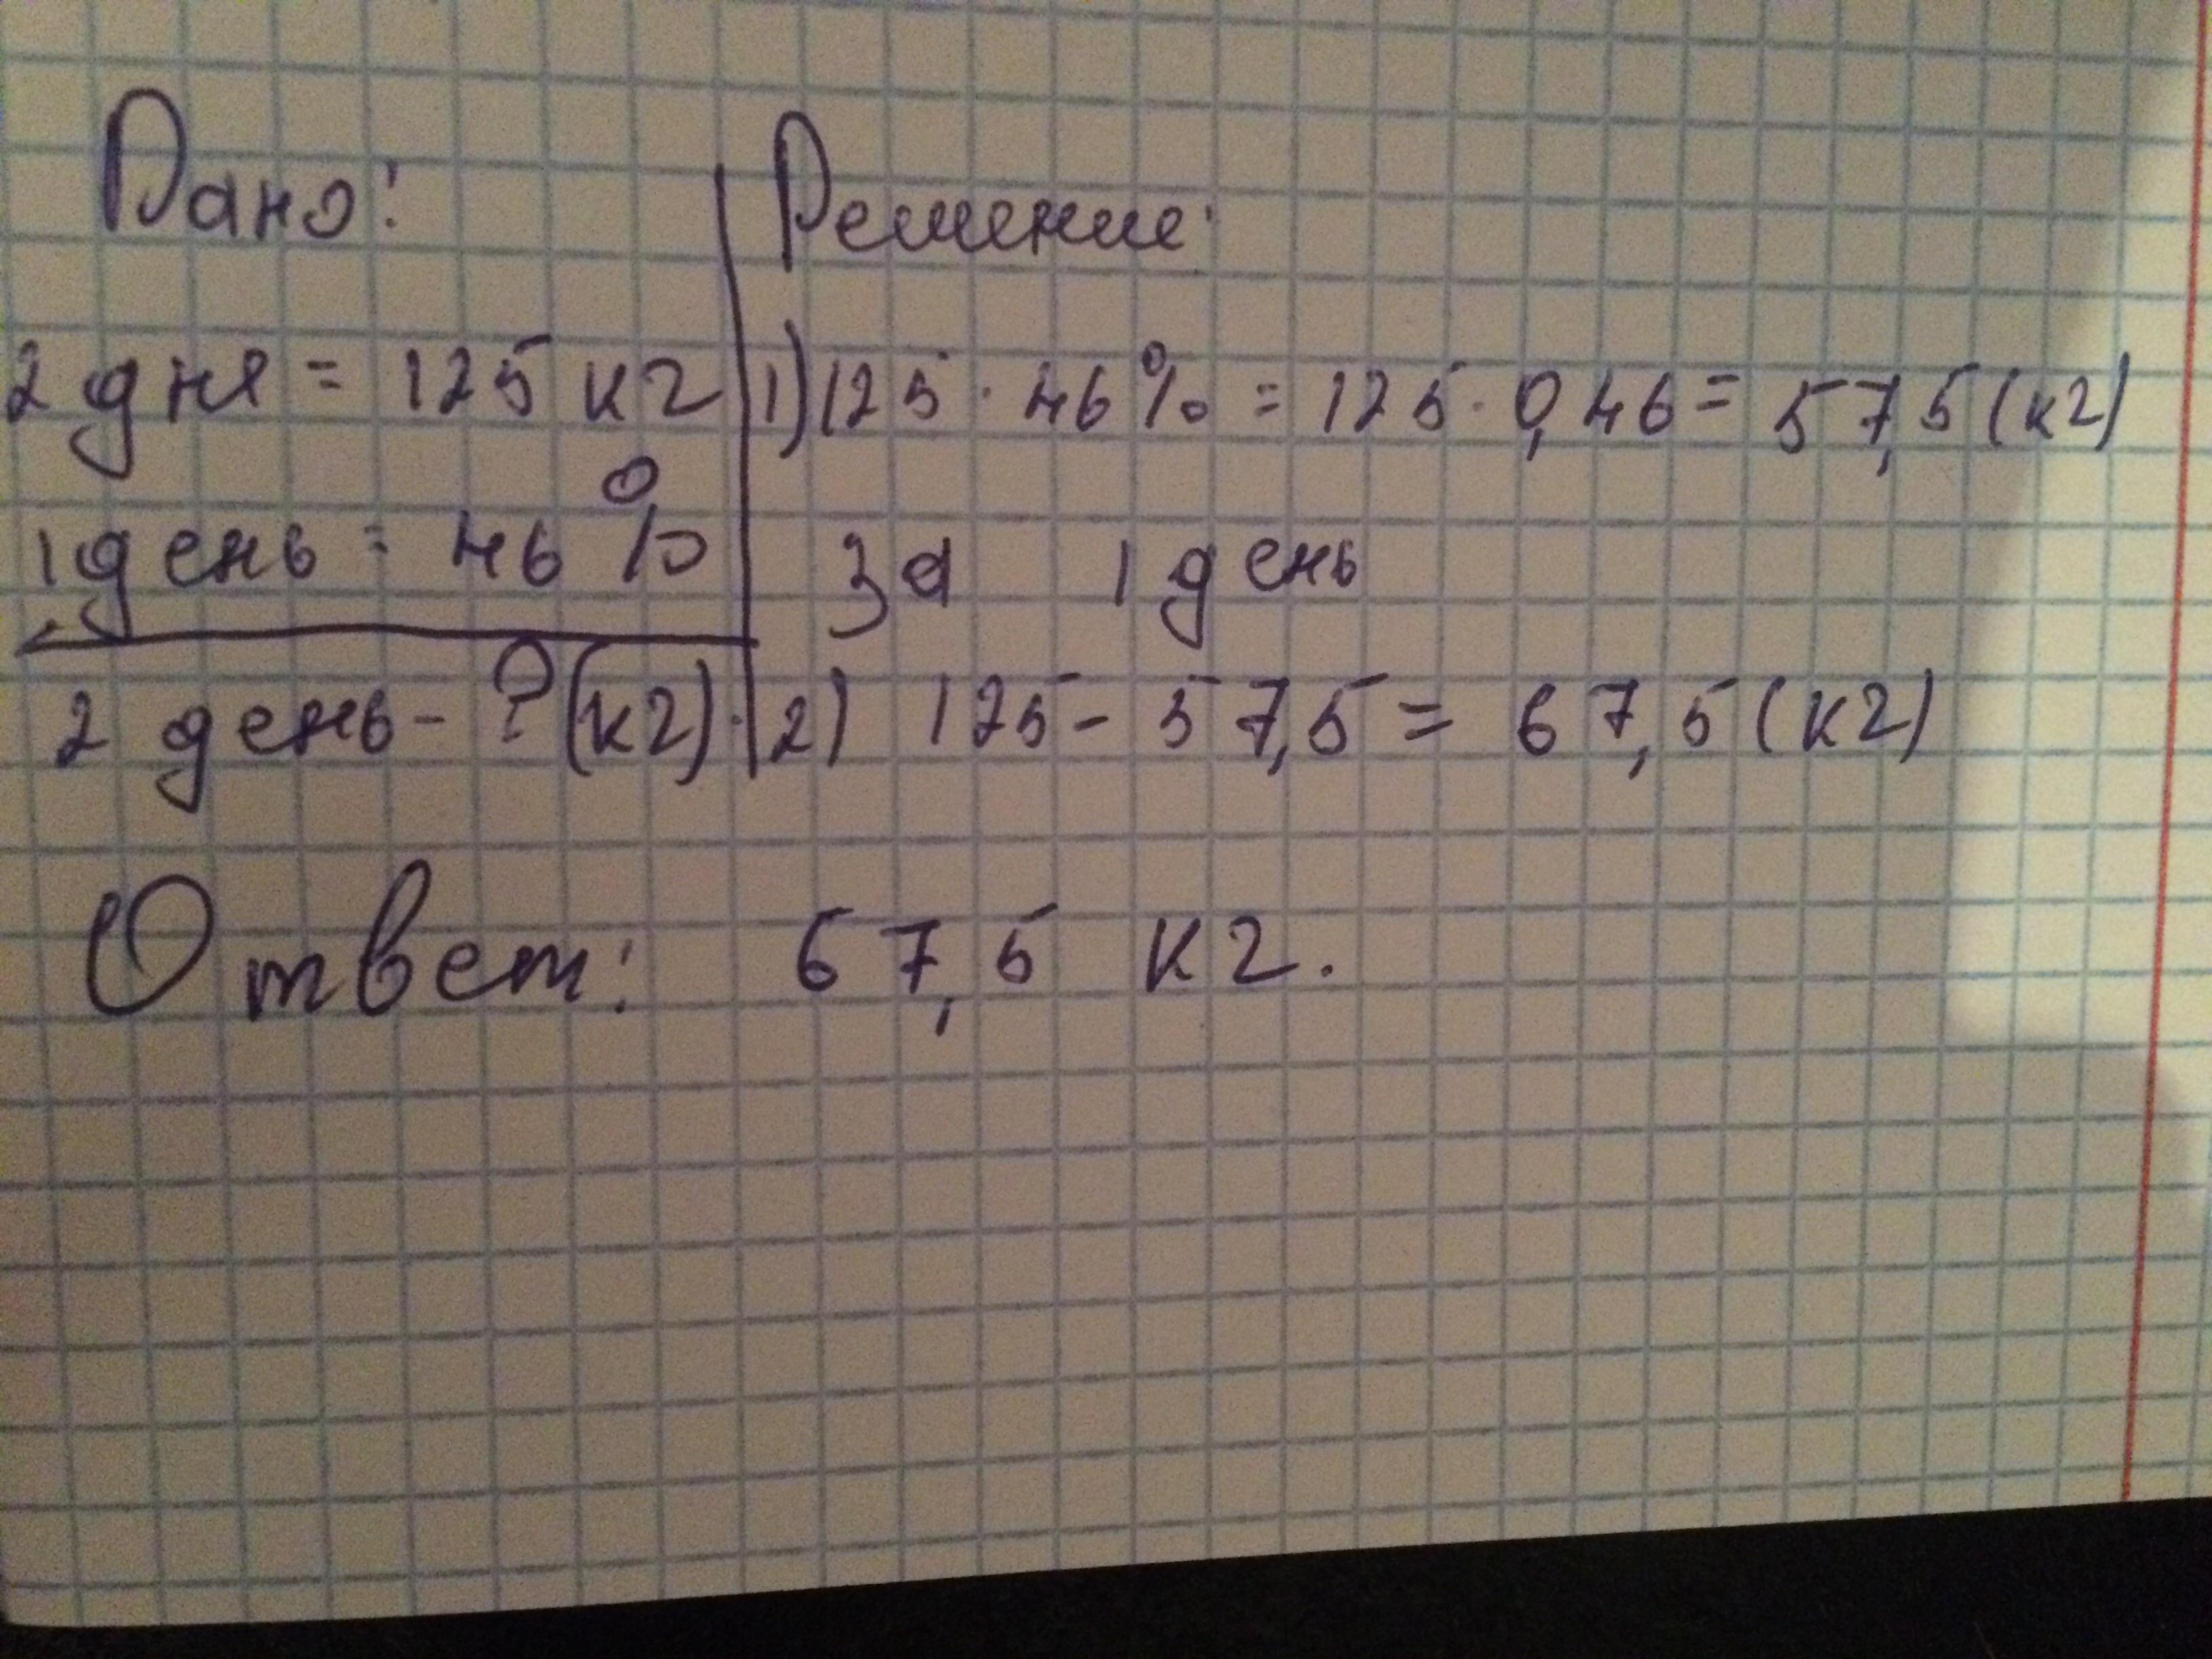 Дано:
2 дня = 125 кг
1 день = 46 %
2 день - ? (кг).
Решение:
1) 125 · 46% = 125 · 0,46 = 57,5 (кг)
за 1 день
2) 125 - 57,5 = 67,5 (кг)
Ответ: 67,5 кг.